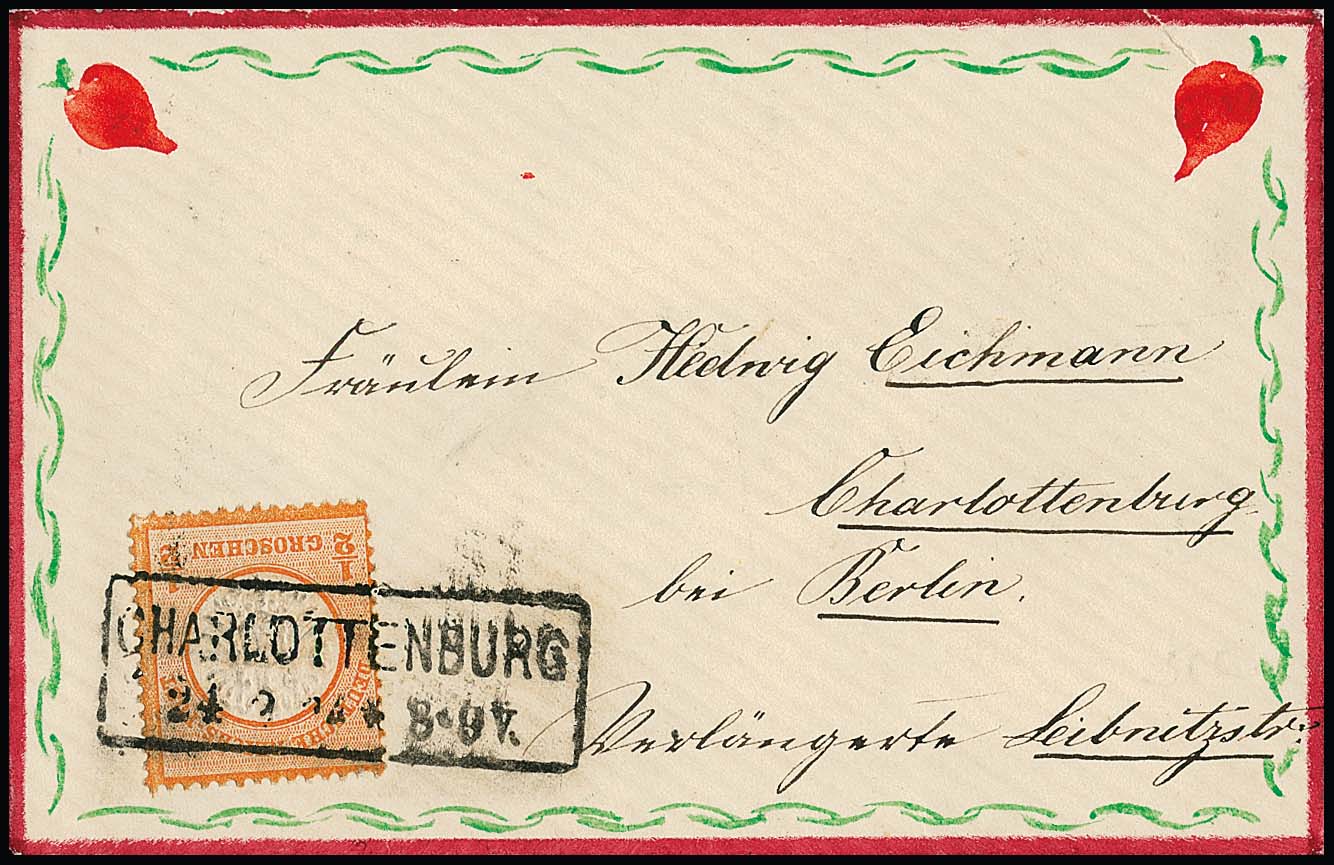 Fräulein Hedwig Eichmann
Charlottenburg
bei Berlin.
Verlängerte Leibnitzstr:
½ GROSCHEN ½
CHARLOTTENBURG
24 2 74 * 8-9V.